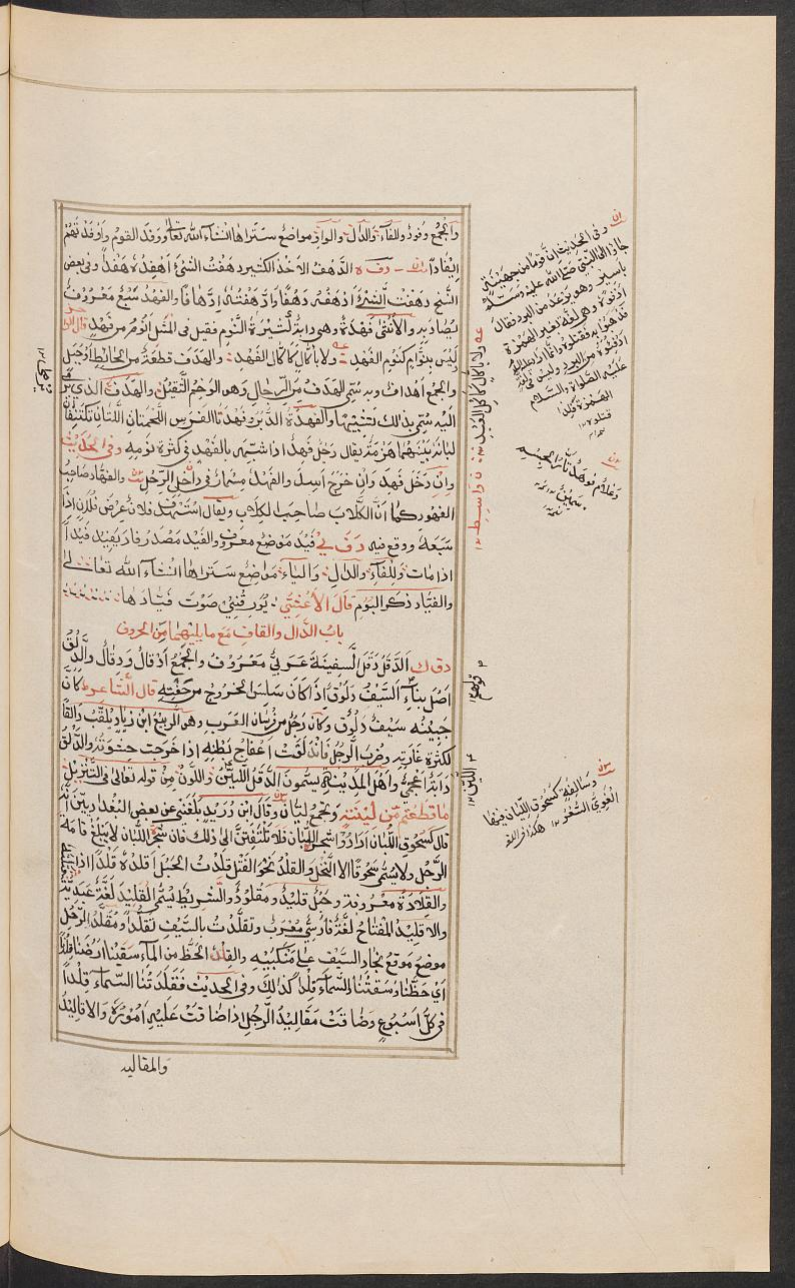 والجمع وفود وللفاء والدال والواو مواضع ستراها انشاء الله تعالى ووفد القوم واوفدتهم
ايفادًا د ف ه الدهف الاخذ الكثير دهفت الشئ ادهفه دهفا وفى بعض
النسخ دهفت الشئ ادهفه دهفًا وادهفته ادهافًا والفهد سبع معروف
يصاد به والانثى فهدة وهى دابة كثيرة النوم فقيل فى المثل انوم من فهد قال الراجز
ليس بنوام كنوم الفهد ولا باكال كاكل الفهد والهدف قطعة من الحائط او جبل
والجمع اهداف وبه سمى الهدف من الرجال وهو الوخم الثقيل والهدف الذى يرمى
اليه سمى بذلك تشبيها والفهدة الدبر وفهدتا الفرس اللحمتان اللتان تكتنفان
لبانه بينهما هزمة يقال رجل فهد اذا شبه بالفهد فى كثرة نومه وفى الحديث
وان دخل فهد وان خرج اسد والفهد مسمار فى داخل الرحل والفهاد صاحب
الفهود كما ان الكلاب صاحب الكلاب ويقال استهدف فلان عرض فلان اذا
سبعه ووقع فيه د ف ى فيد موضع معروف والفيد مصدر فاد يفيد فيدًا
اذا مات وللفاء والدال والياء مواضع ستراها انشاء الله تعالى
والفياد ذكر البوم قال الاعشى يؤرقنى صوت فيادها
باب الدال والقاف مع ما يليهما من الحروف
د ق ل الدقل دقل السفينة عربى معروف والجمع ادقال ودقال والدلق
اصل بناء السيف دلوق اذا كان سلس الخروج من جفنه قال الشاعر كان
جبينه سيف دلوق وكان رجل من فرسان العرب وهو الربيع ابن زياد يلقب دالقا
لكثرة غاراته وضرب الرجل فاندلقت اعفاج بطنه اذا خرجت حشوته والدلق
دابة اعجمى واهل المدينة يسمون الدقل اللين واللون من قوله تعالى فى التنزيل
ما قطعتم من لينة وتجمع ليان وقال ابن دريد بلغنى عن بعض البغداديين انه
قال كسحوق اللبان ارادوا شجر اللبان فلا تلتفتن الى ذلك فان شجر اللبان لا يبلغ قامة
الرجل ولا يسمى سحوقا الا النخل والقلد نحو الفتل قلدت الحبل اقلده قلدا اذا فتلته
والقلادة معروفة وحبل قليد ومقلود والشريط يسمى القليد لغة عبدية
والاقليد المفتاح لغة فارسى معرب وتقلدت بالسيف تقلدا ومقلد الرجل
موضع موقع نجاد السيف على منكبيه والقلد الحظ من الماء سقينا ارضنا قلدها
اى حظها وسقتنا السماء قلدا كذلك وفى الحديث فقلدتنا السماء قلدًا
فى كل اسبوع وضاقت مقاليد الرجل اذا ضاقت عليه اموره والاقاليد
والمقاليد
وفى الحديث ان قوما من جهينة
جاؤا الى النبى صلى الله عليه وسلم
باسير وهو يرعد من البرد فقال
ادفوه وهى لغة بغير الهمزة
فذهبوا به فقتلوه وانما اراد
ادفئوه من البرد وليس فى لغته
عليه الصلوة والسلام
الهمزة
ولا باكال كاكل العبد
وغلام فوهد تام الجسم
سمين
وسالفة كسحوق الليان فيها
الغوى السعر
اللين